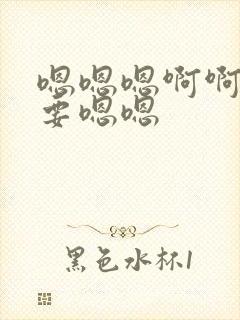 嗯嗯嗯啊啊
要嗯嗯
黑色水杯1